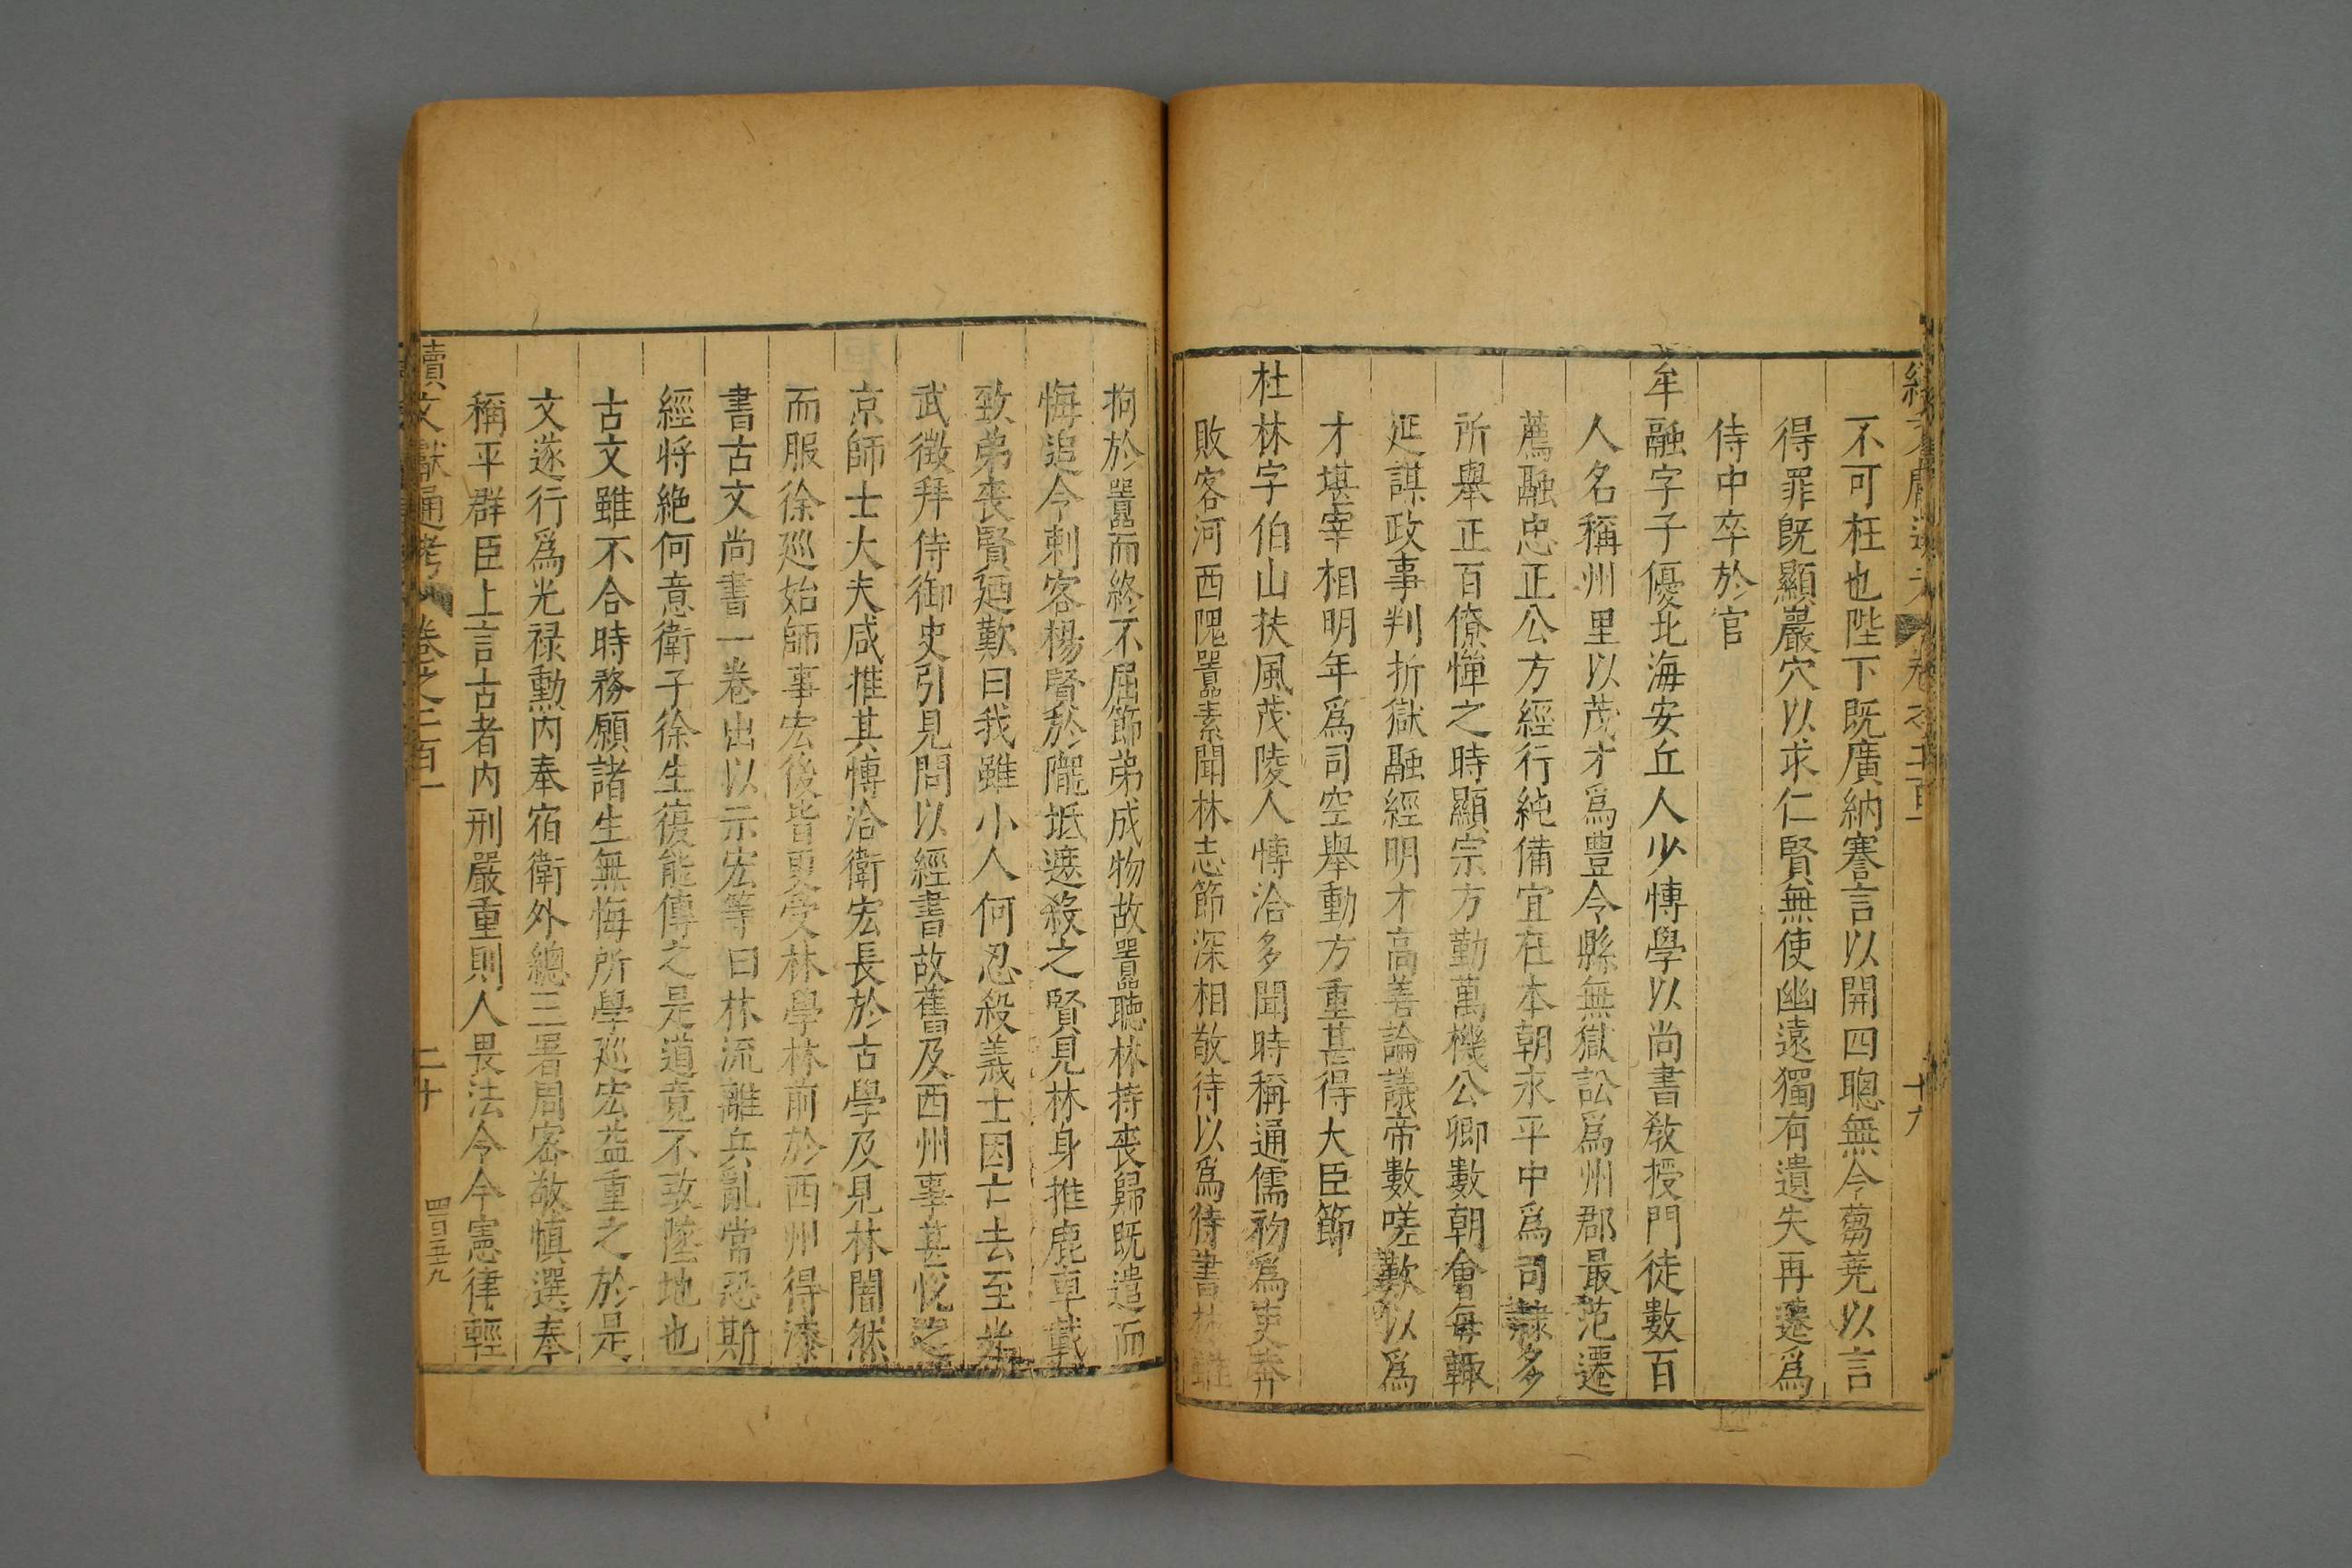 不可枉也陛下既廣納謇言以開四聰無令蒭蕘以言
得罪旣顯巖穴以求仁賢無使幽遠獨有遺失再遷爲
侍中卒於官
牟融字子優北海安丘人少愽學以尚書敎授門徒數百
人名稱州里以茂才爲豊令縣無獄訟爲州郡最范遷
薦融忠正公方經行純備宜在本朝永平中爲司隸多
所舉正百僚憚之時顯宗方勤萬機公卿數朝會每輙
延謀政事判折獄融經明才高善論議帝數嗟歎以爲
才堪宰相明年爲司空舉動方重甚得大臣節
杜林字伯山扶風茂陵人愽洽多聞時稱通儒初爲吏莽
敗客河西隗囂素聞林志節深相敬待以爲待書林雖
拘於囂而終不屈節弟成物故囂聽林持丧歸既遣而
悔追令刺客楊賢於隴坻遮殺之賢見林身推鹿車載
致弟丧賢廼歎曰我雖小人何忍殺義士因亡去至光
武徵拜侍御史引見問以經書故舊及西州事甚悅之
京師士大夫咸推其愽洽衛宏長於古學及見林闇然
而服徐廵始師事宏後皆更受林學林前於西州得漆
書古文尚書一卷出以示宏等曰林流離兵亂常恐斯
經將絶何意衛子徐生復能傳之是道竟不致墜地也
古文雖不合時務願諸生無悔所學廵宏益重之於是
文遂行爲光禄勳内奉宿衛外總三署周密敬慎選奉
稱平群臣上言古者内刑嚴重則人畏法令今憲律輕
續文獻通考 卷之二百一 二十 四百五十九